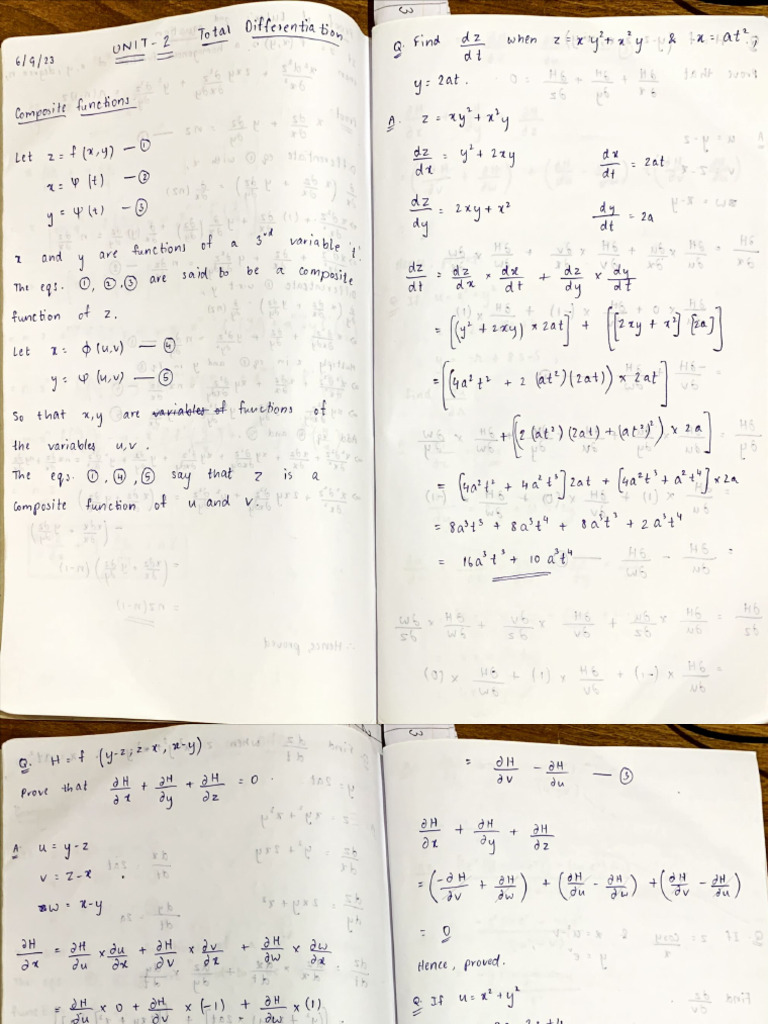 6/9/23
UNIT-2 Total Differentiation
Composite functions
Let z = f(x,y) — ①
x = Ψ(t) — ②
y = Ψ(t) — ③
x and y are functions of a 3rd variable t.
The eqs. ①, ②, ③ are said to be a composite
function of z.
Let x = ϕ(u,v) — ④
y = Ψ(u,v) — ⑤
So that x,y are variables of functions of
the variables u,v.
The eqs. ①, ④, ⑤ say that z is a
composite function of u and v.
3
Q. Find dz/dt when z = xy² + x²y & x = at²,
y = 2at.
A. z = xy² + x²y
dz/dx = y² + 2xy dx/dt = 2at
dz/dy = 2xy + x² dy/dt = 2a
dz/dt = dz/dx × dx/dt + dz/dy × dy/dt
= [(y² + 2xy) × 2at] + [[2xy + x²] [2a]]
= [(4a²t² + 2(at²)(2at)) × 2at]
+ [(2(at²)(2at) + (at²)²) × 2a]
= [4a²t² + 4a²t³] 2at + [4a²t³ + a²t⁴] × 2a
= 8a³t³ + 8a³t⁴ + 8a³t³ + 2a³t⁴
= 16a³t³ + 10a³t⁴
Q. H = f (y-z, z-x, x-y)
Prove that ∂H/∂x + ∂H/∂y + ∂H/∂z = 0.
A. u = y-z
v = z-x
w = x-y
∂H/∂x = ∂H/∂u × ∂u/∂x + ∂H/∂v × ∂v/∂x + ∂H/∂w × ∂w/∂x
= ∂H/∂u × 0 + ∂H/∂v × (-1) + ∂H/∂w × (1)
3
= ∂H/∂v - ∂H/∂u — ③
∂H/∂x + ∂H/∂y + ∂H/∂z
= (-∂H/∂v + ∂H/∂w) + (∂H/∂u - ∂H/∂w) + (∂H/∂v - ∂H/∂u)
= 0
Hence, proved.
Q. If u = x² + y²